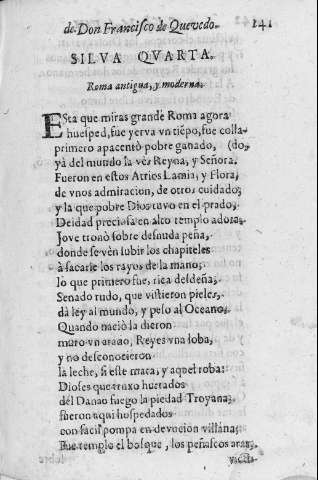 de Don Francisco de Quevedo. 141
SILVA QVARTA.
Roma antigua, y moderna.
ESta que miras grande Roma agora
huesped, fue yerva un tiẽpo, fue colla-
primero apacentò pobre ganado, (do,
yà del mundo la vès Reyna, y Señora.
Fueron en estos Atrios Lamia, y Flora,
de vnos admiracion, de otros cuidado;
y la que pobre Dios tuvo en el prado,
Deidad preciosa en alto templo adora;
Jove tronò sobre desnuda peña,
donde se vèn subir los chapiteles
à sacarle los rayos de la mano;
lo que primero fue, rica desdeña,
Senado rudo, que vistieron pieles,
dà ley al mundo, y peso al Oceano,
Quando naciò la dieron
muro vn arado, Reyes vna loba,
y no desconocieron
la leche, si este mata, y aquel roba:
Dioses que truxo hurtados
del Danao fuego la piedad Troyana,
fueron aqui hospedados
con facil pompa en devocion villana;
Fue templo el bosque, los peñascos aras,